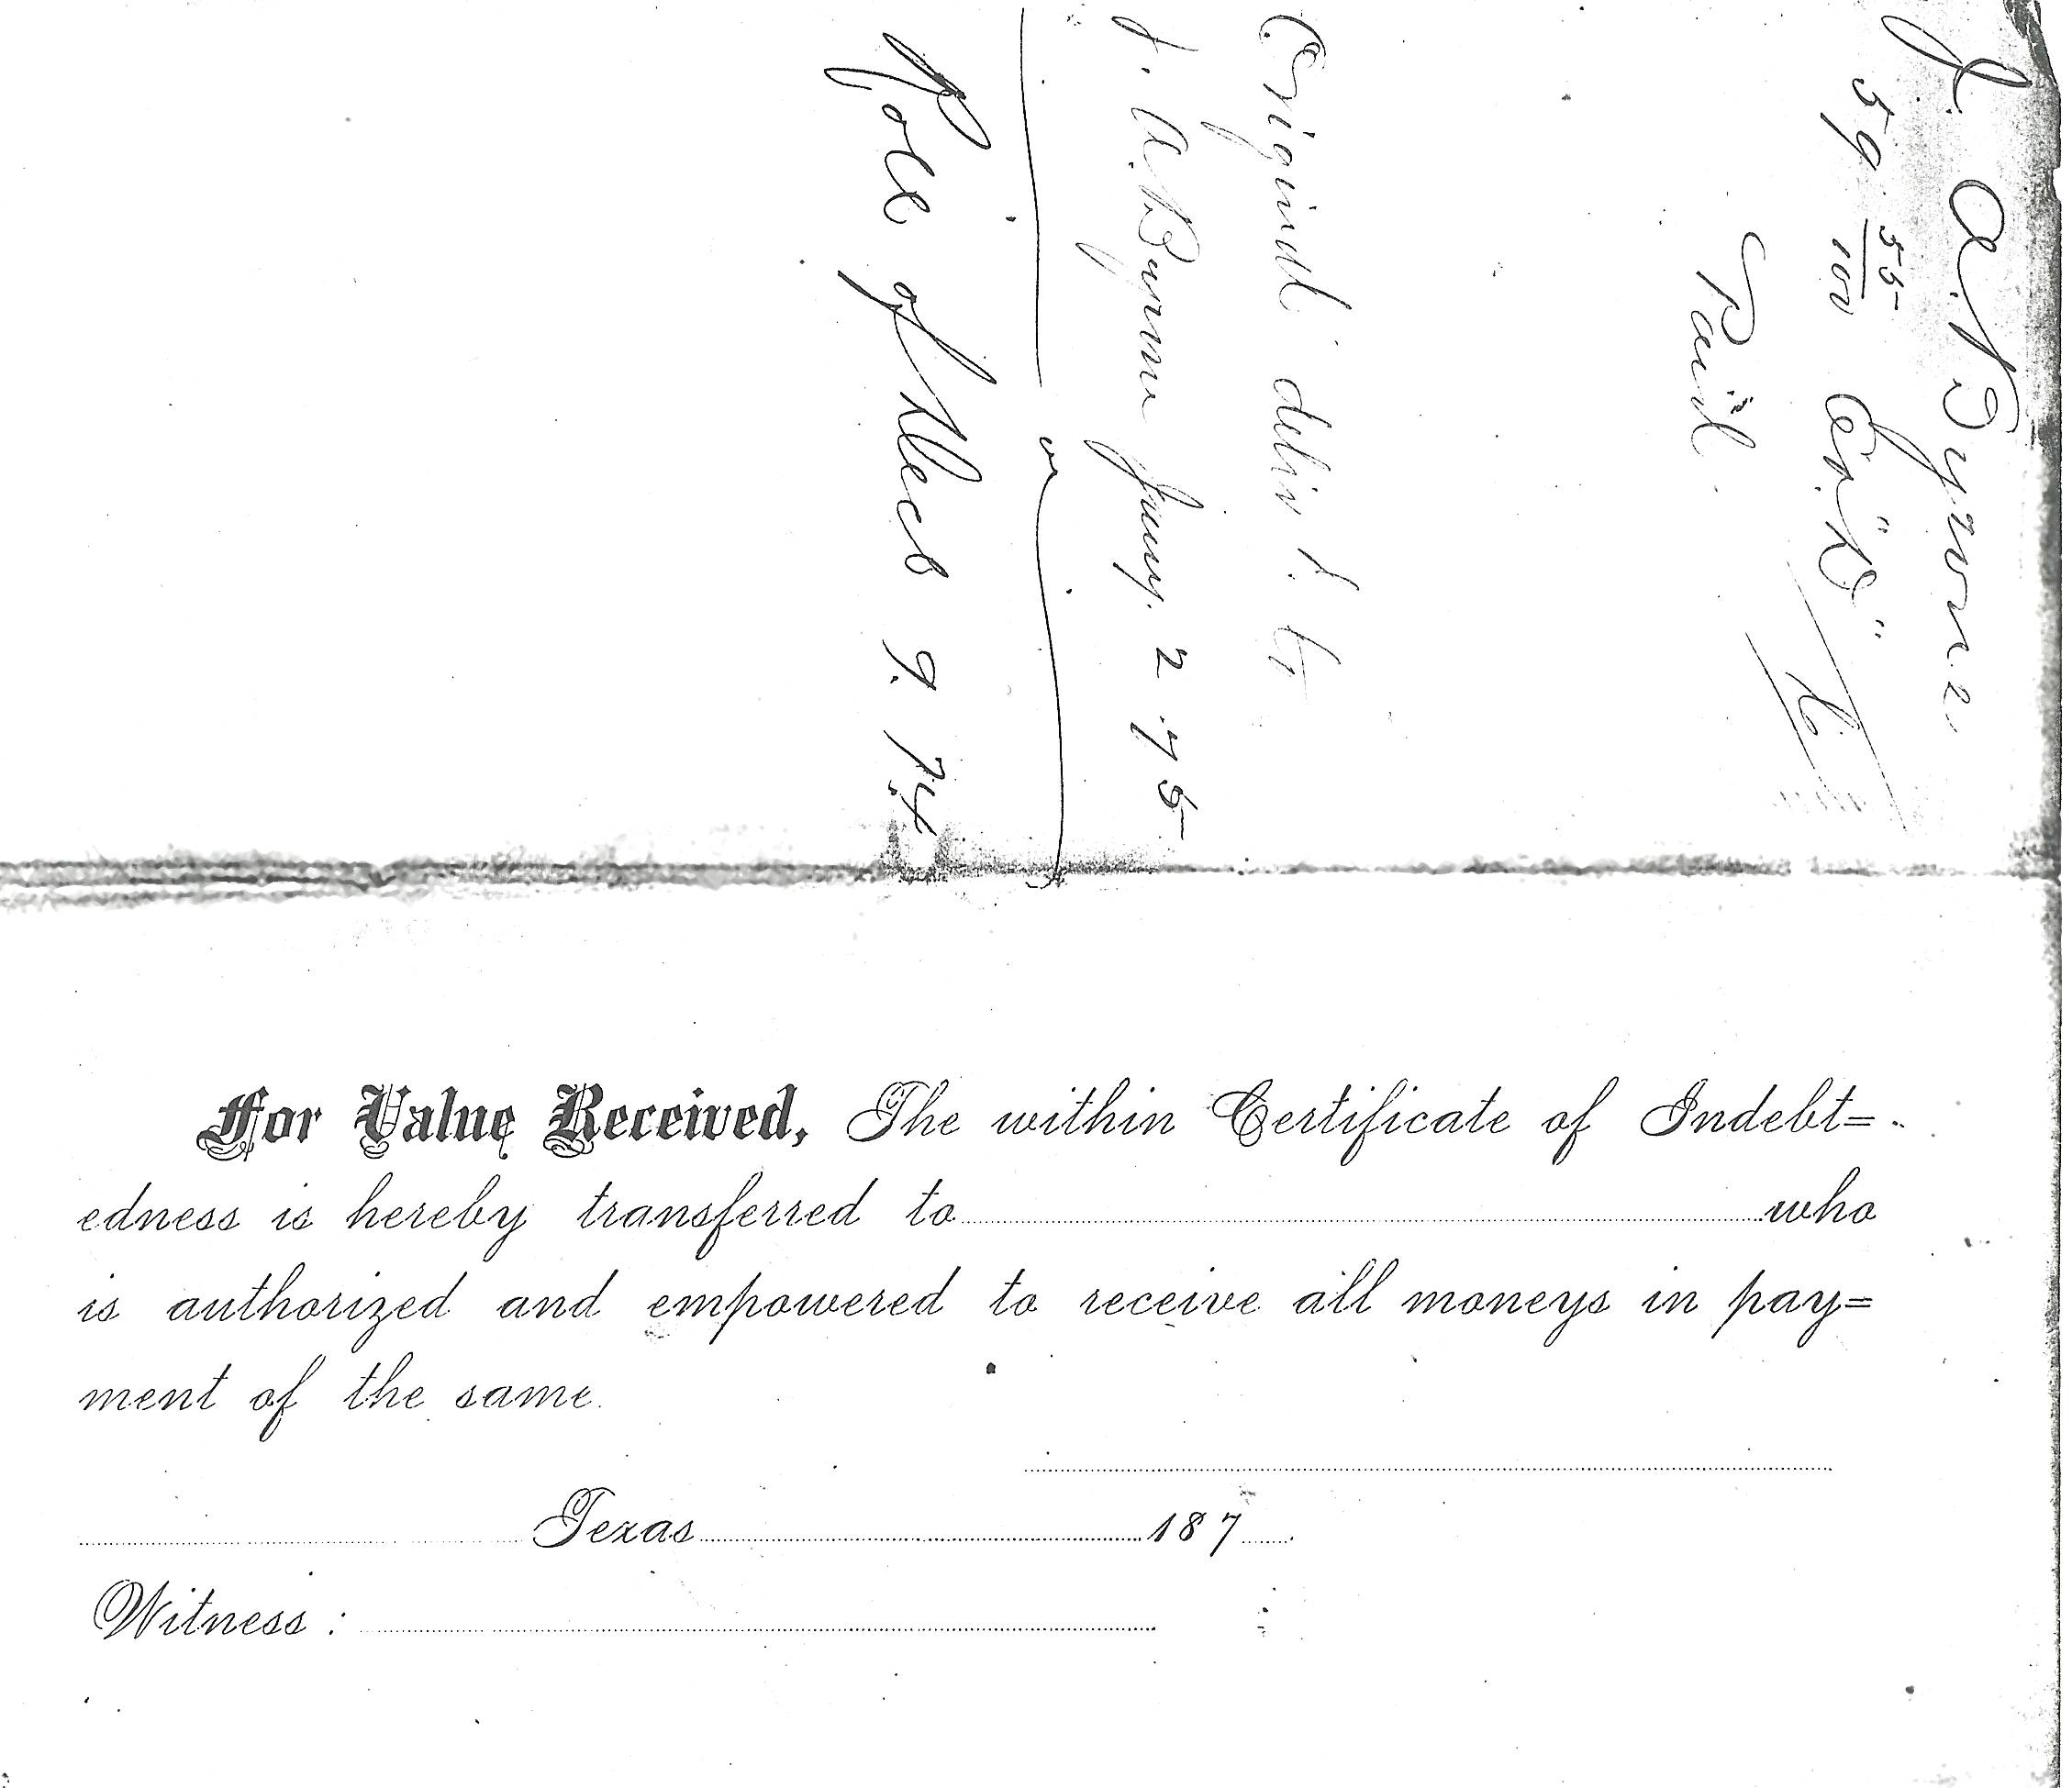 J. A. Byrne
59 55/100 Cert
Paid
Original deliv'd. to
J. A. Byrne Jany. 2 75
Role of Decb 9. 74
For Value Received, The within Certificate of Indebt=
edness is hereby transferred to who
is authorized and empowered to receive all moneys in pay=
ment of the same.
Texas 187
Witness :